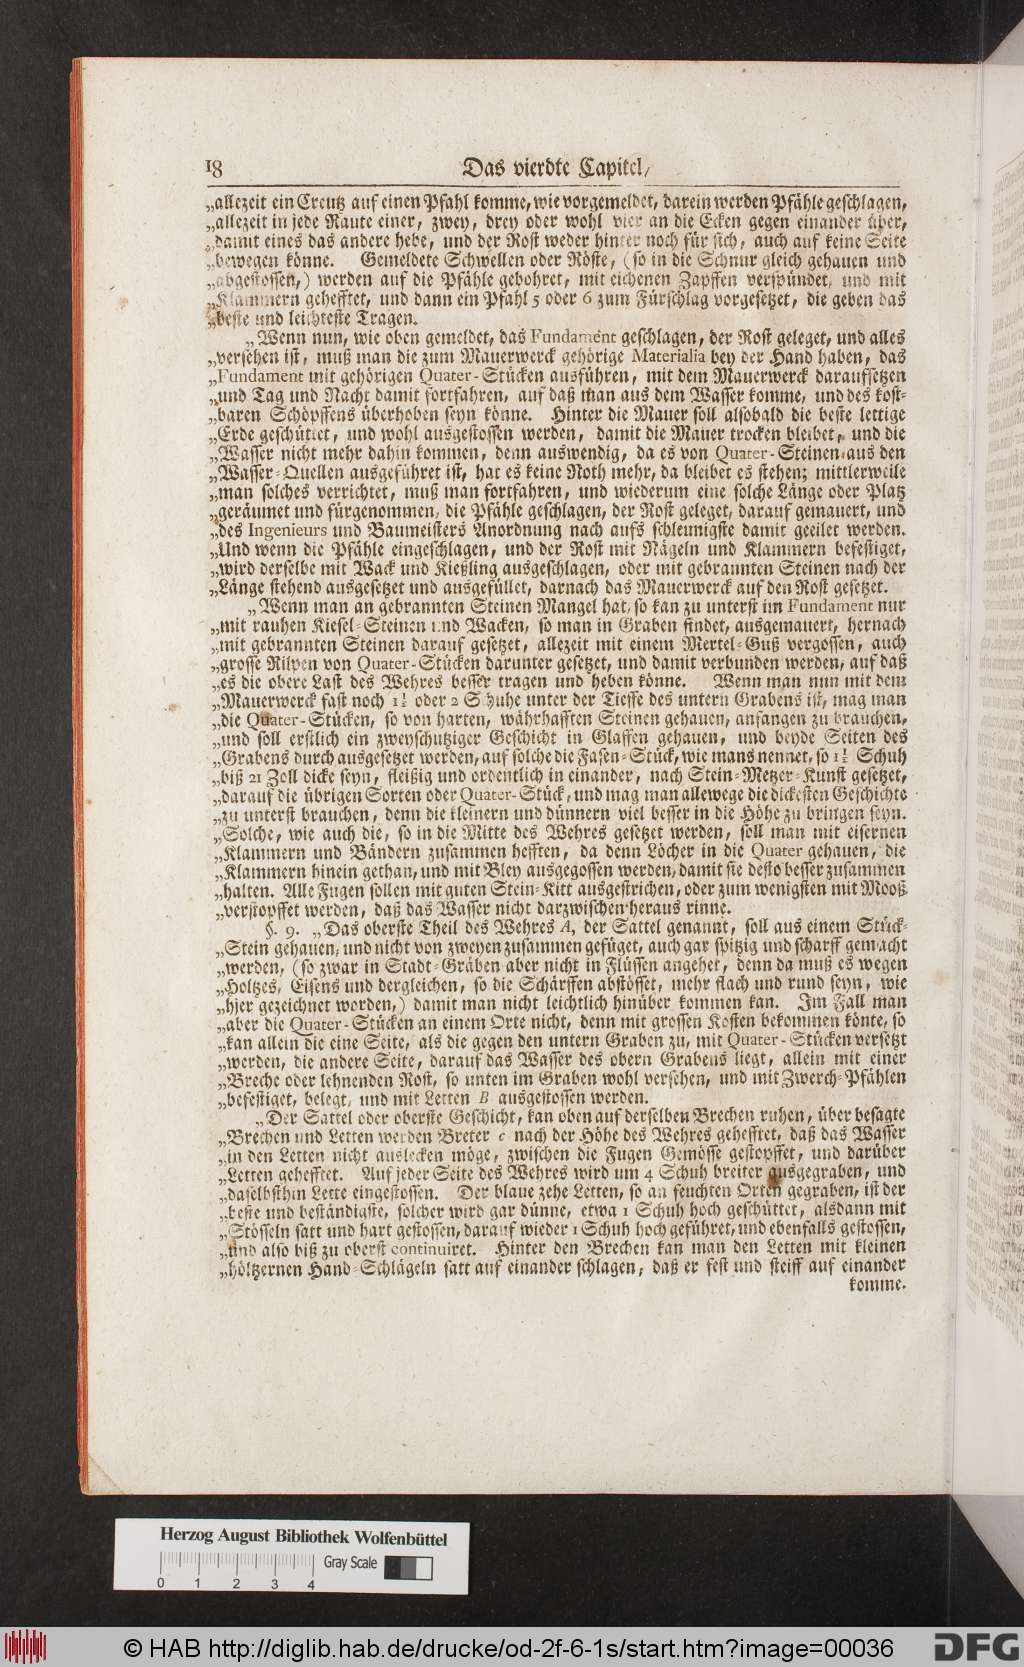 18 Das vierdte Capitel,
„allezeit ein Creutz auf einen Pfahl komme, wie vorgemeldet, darein werden Pfähle geschlagen,
„allezeit in jede Raute einer, zwey, drey oder wohl vier an die Ecken gegen einander über,
„damit eines das andere hebe, und der Rost weder hinter noch für sich, auch auf keine Seite
„bewegen könne. Gemeldete Schwellen oder Röste, (so in die Schnur gleich gehauen und
„abgestossen,) werden auf die Pfähle gebohret, mit eichenen Zapffen verspündet, und mit
„Klammern gehefftet, und dann ein Pfahl 5 oder 6 zum Fürschlag vorgesetzet, die geben das
„beste und leichteste Tragen.
„Wenn nun, wie oben gemeldet, das Fundament geschlagen, der Rost geleget, und alles
„versehen ist, muß man die zum Mauerwerck gehörige Materialia bey der Hand haben, das
„Fundament mit gehörigen Quater-Stücken ausführen, mit dem Mauerwerck daraufsetzen
„und Tag und Nacht damit fortfahren, auf daß man aus dem Wasser komme, und des kost-
„baren Schöpffens überhoben seyn könne. Hinter die Mauer soll alsobald die beste lettige
„Erde geschüttet, und wohl ausgestossen werden, damit die Mauer trocken bleibet, und die
„Wasser nicht mehr dahin kommen, denn auswendig, da es von Quater-Steinen aus den
„Wasser-Quellen ausgeführet ist, hat es keine Noth mehr, da bleibet es stehen; mittlerweile
„man solches verrichtet, muß man fortfahren, und wiederum eine solche Länge oder Platz
„geräumet und fürgenommen, die Pfähle geschlagen, der Rost geleget, darauf gemauert, und
„des Ingenieurs und Baumeisters Anordnung nach aufs schleunigste damit geeilet werden.
„Und wenn die Pfähle eingeschlagen, und der Rost mit Nägeln und Klammern befestiget,
„wird derselbe mit Wack und Kießling ausgeschlagen, oder mit gebrannten Steinen nach der
„Länge stehend ausgesetzet und ausgefüllet, darnach das Mauerwerck auf den Rost gesetzet.
„Wenn man an gebrannten Steinen Mangel hat, so kan zu unterst im Fundament nur
„mit rauhen Kiesel-Steinen und Wacken, so man in Graben findet, ausgemauert, hernach
„mit gebrannten Steinen darauf gesetzet, allezeit mit einem Mertel-Guß vergossen, auch
„grosse Rilpen von Quater-Stücken darunter gesetzet, und damit verbunden werden, auf daß
„es die obere Last des Wehres besser tragen und heben könne. Wenn man nun mit dem
„Mauerwerck fast noch 1½ oder 2 Schuhe unter der Tieffe des untern Grabens ist, mag man
„die Quater-Stücken, so von harten, währhafften Steinen gehauen, anfangen zu brauchen,
„und soll erstlich ein zweyschutziger Geschicht in Glassen gehauen, und beyde Seiten des
„Grabens durch ausgesetzet werden, auf solche die Fasen-Stück, wie mans nennet, so 1½ Schuh
„biß 21 Zoll dicke seyn, fleißig und ordentlich in einander, nach Stein-Metzer-Kunst gesetzet,
„darauf die übrigen Sorten oder Quater-Stück, und mag man allewege die dickesten Geschichte
„zu unterst brauchen, denn die kleinern und dünnern viel besser in die Höhe zu bringen seyn.
„Solche, wie auch die, so in die Mitte des Wehres gesetzet werden, soll man mit eisernen
„Klammern und Bändern zusammen hefften, da denn Löcher in die Quater gehauen, die
„Klammern hinein gethan, und mit Bley ausgegossen werden, damit sie desto besser zusammen
„halten. Alle Fugen sollen mit guten Stein-Kitt ausgestrichen, oder zum wenigsten mit Mooß
„verstopffet werden, daß das Wasser nicht darzwischen heraus rinne.
§. 9. „Das oberste Theil des Wehres A, der Sattel genannt, soll aus einem Stück-
„Stein gehauen, und nicht von zweyen zusammen gefüget, auch gar spitzig und scharff gemacht
„werden, (so zwar in Stadt-Gräben aber nicht in Flüssen angehet, denn da muß es wegen
„Holtzes, Eisens und dergleichen, so die Schärffen abstösset, mehr flach und rund seyn, wie
„hier gezeichnet worden,) damit man nicht leichtlich hinüber kommen kan. Im Fall man
„aber die Quater-Stücken an einem Orte nicht, denn mit grossen Kosten bekommen könte, so
„kan allein die eine Seite, als die gegen den untern Graben zu, mit Quater-Stücken versetzt
„werden, die andere Seite, darauf das Wasser des obern Grabens liegt, allein mit einer
„Breche oder lehnenden Rost, so unten im Graben wohl versehen, und mit Zwerch-Pfählen
„befestiget, belegt, und mit Letten B ausgestossen werden.
„Der Sattel oder oberste Geschicht, kan oben auf derselben Brechen ruhen, über besagte
„Brechen und Letten werden Breter c nach der Höhe des Wehres gehefftet, daß das Wasser
„in den Letten nicht auslecken möge, zwischen die Fugen Gemösse gestopffet, und darüber
„Letten gehefftet. Auf jeder Seite des Wehres wird um 4 Schuh breiter ausgegraben, und
„daselbsthin Lette eingestossen. Der blaue zehe Letten, so an feuchten Orten gegraben, ist der
„beste und beständigste, solcher wird gar dünne, etwa 1 Schuh hoch geschüttet, alsdann mit
„Stösseln satt und hart gestossen, darauf wieder 1 Schuh hoch geführet, und ebenfalls gestossen,
„und also biß zu oberst continuiret. Hinter den Brechen kan man den Letten mit kleinen
„höltzernen Hand-Schlägeln satt auf einander schlagen, daß er fest und steiff auf einander
komme.
Herzog August Bibliothek Wolfenbüttel
Gray Scale
0 1 2 3 4
© HAB http://diglib.hab.de/drucke/od-2f-6-1s/start.htm?image=00036
DFG